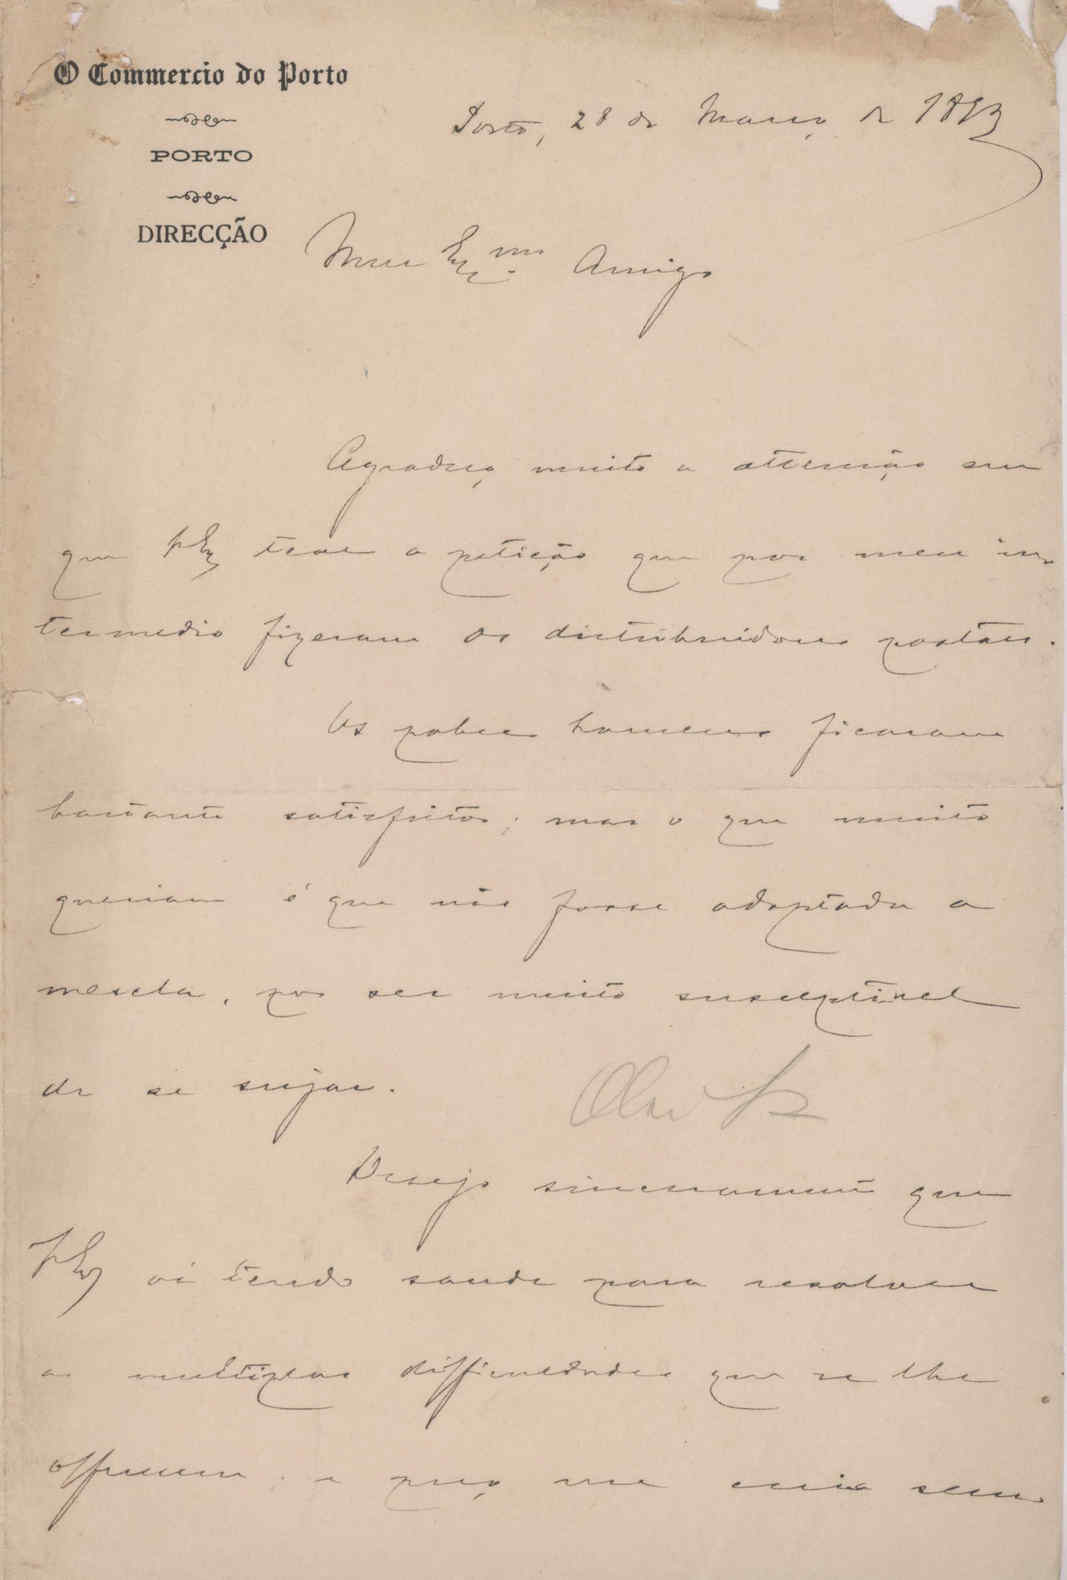 O Commercio do Porto
PORTO
DIRECÇÃO
Porto, 28 de Março de 1893
Meu Exmo. Amigo
Agradeço muito a attenção em
que V Exª teve a petição que por meu in-
termedio fizeram os distribuidores postaes.
Os pobres homens ficaram
bastante satisfeitos; mas o que muito
queriam é que não fosse adoptada a
mescla, por ser muito susceptivel
de se sujar.
Desejo sinceramente que
V Exª vá tendo saude para resolver
as multiplas difficuldades que se lhe
offerecem; e peço me creia sem